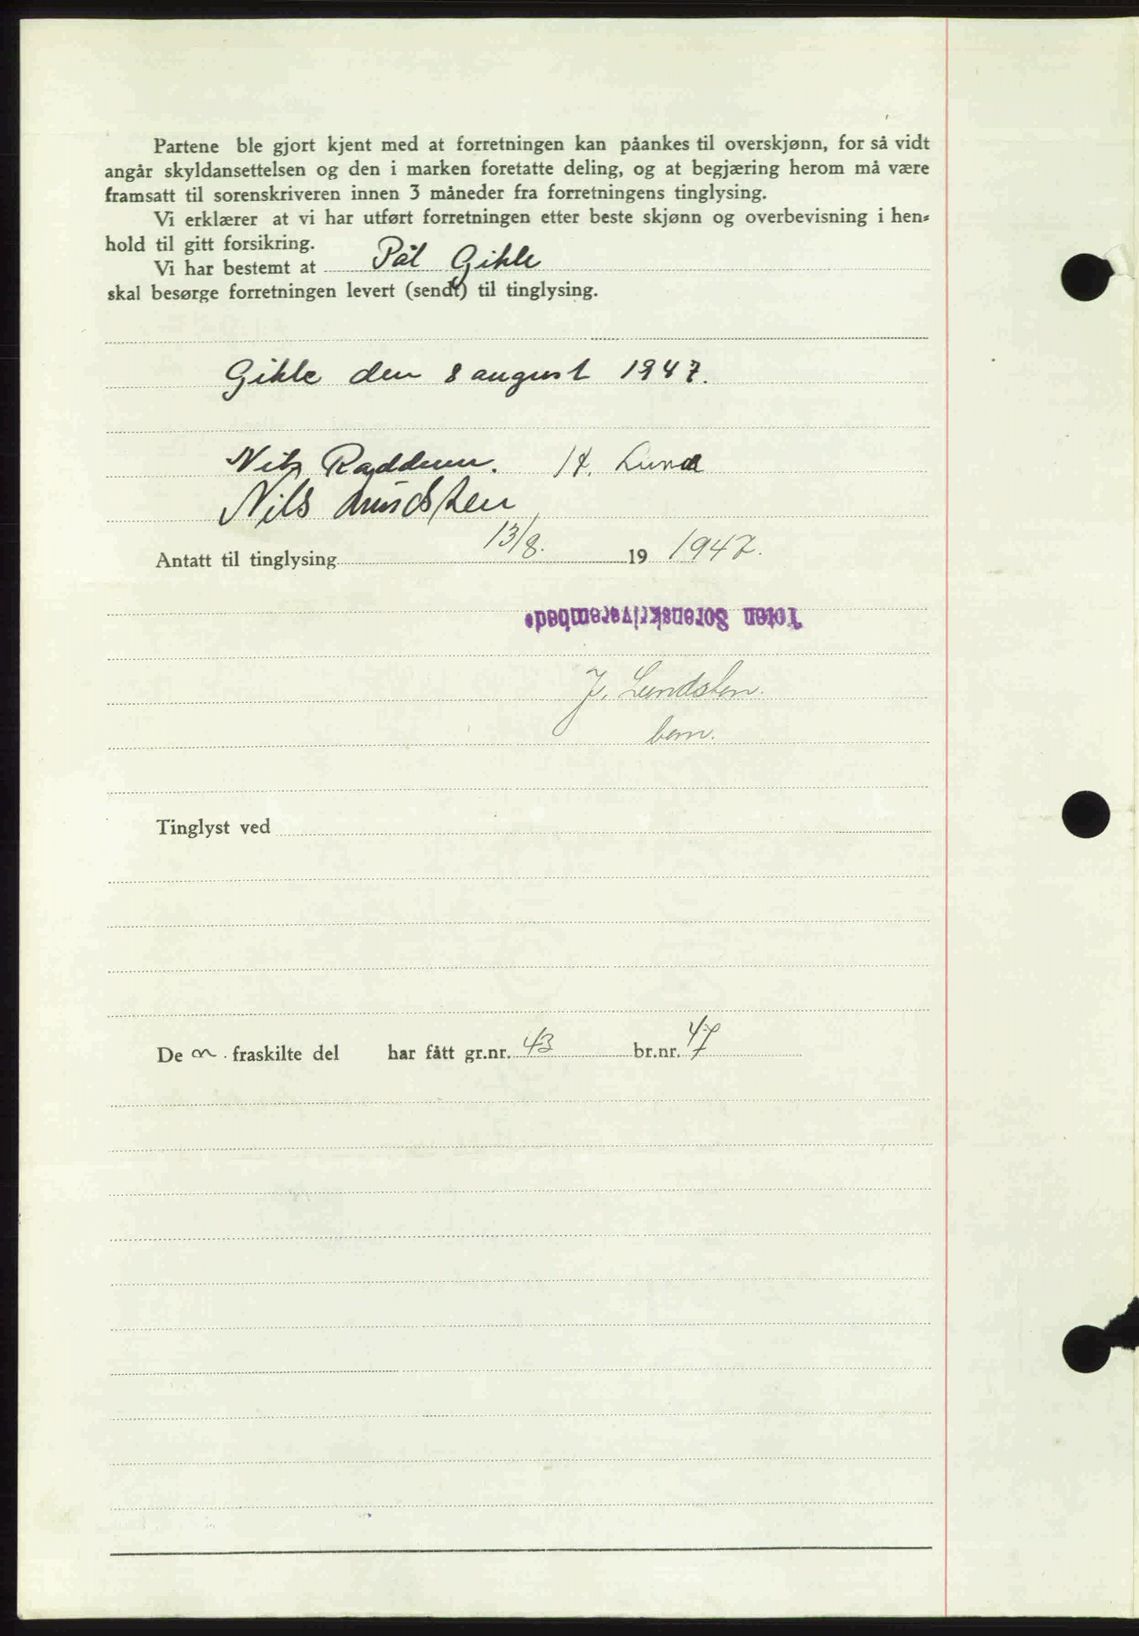 Partene ble gjort kjent med at forretningen kan påankes til overskjønn, for så vidt
angår skyldansettelsen og den i marken foretatte deling, og at begjæring herom må være
framsatt til sorenskriveren innen 3 måneder fra forretningens tinglysing.
Vi erklærer at vi har utført forretningen etter beste skjønn og overbevisning i hen-
hold til gitt forsikring.
Vi har bestemt at Pål Gihle
skal besørge forretningen levert (sendt) til tinglysing.
Gihle den 8 august 1947.
Nils Raddum. H. Lund
Nils Lundsten
Antatt til tinglysing 13/8. 19 1947.
Toten Sorenskriverembede.
J. Lundsten.
bem.
Tinglyst ved
De n fraskilte del har fått gr.nr. 43 br.nr. 47